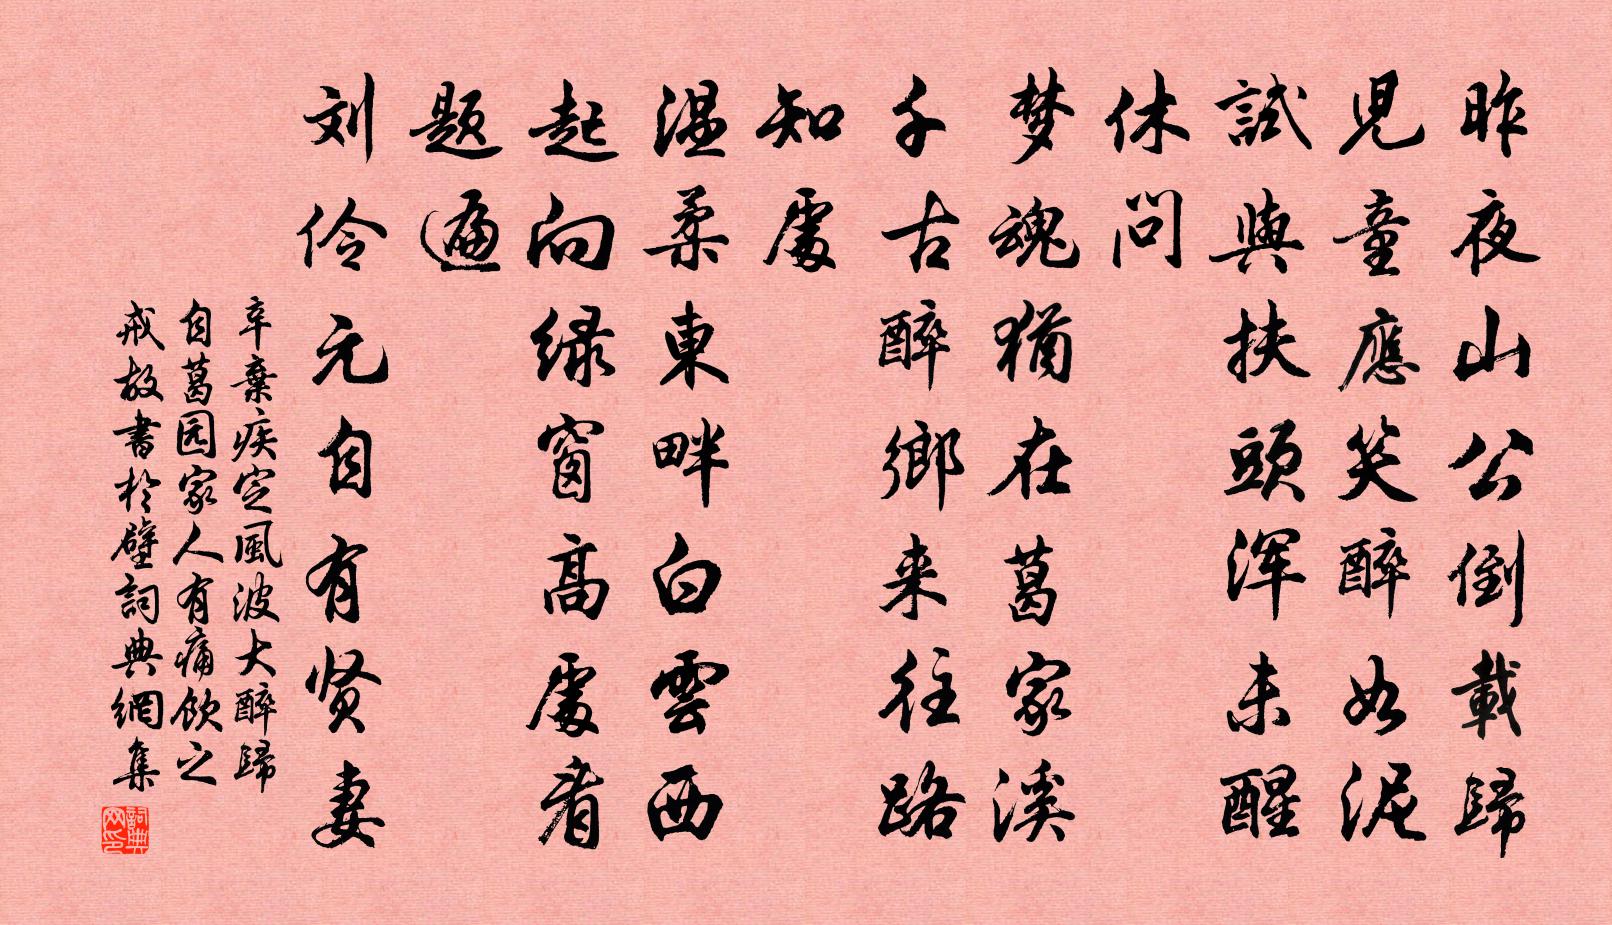 昨夜山公倒載歸
兒童應笑醉如泥
試與扶頭渾未醒
休問
梦魂猶在葛家溪
千古醉鄉来往路
知處
温柔東畔白雲西
起向绿窗高處看
题遍
刘伶元自有贤妻
辛棄疾定風波大醉歸
自葛园家人有痛飲之
戒故書於壁詞典網集
詞典网印